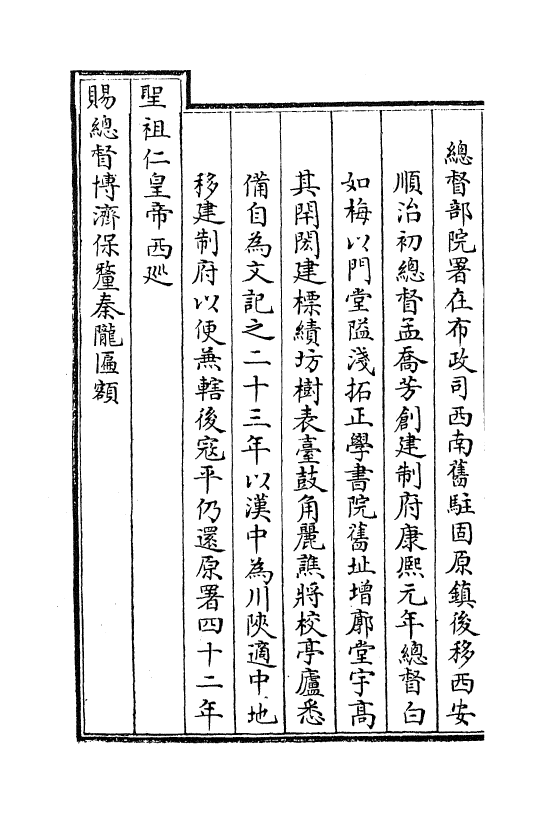 總督部院署在布政司西南舊駐固原鎮後移西安
順治初總督孟喬芳創建制府康熙元年總督白
如梅以門堂隘淺拓正學書院舊址增廓堂宇高
其閈閎建標績坊樹表臺鼓角麗譙將校亭廬悉
備自為文記之二十三年以漢中為川陜適中地
移建制府以便兼轄後寇平仍還原署四十二年
聖祖仁皇帝西廵
賜總督博濟保釐秦隴匾額